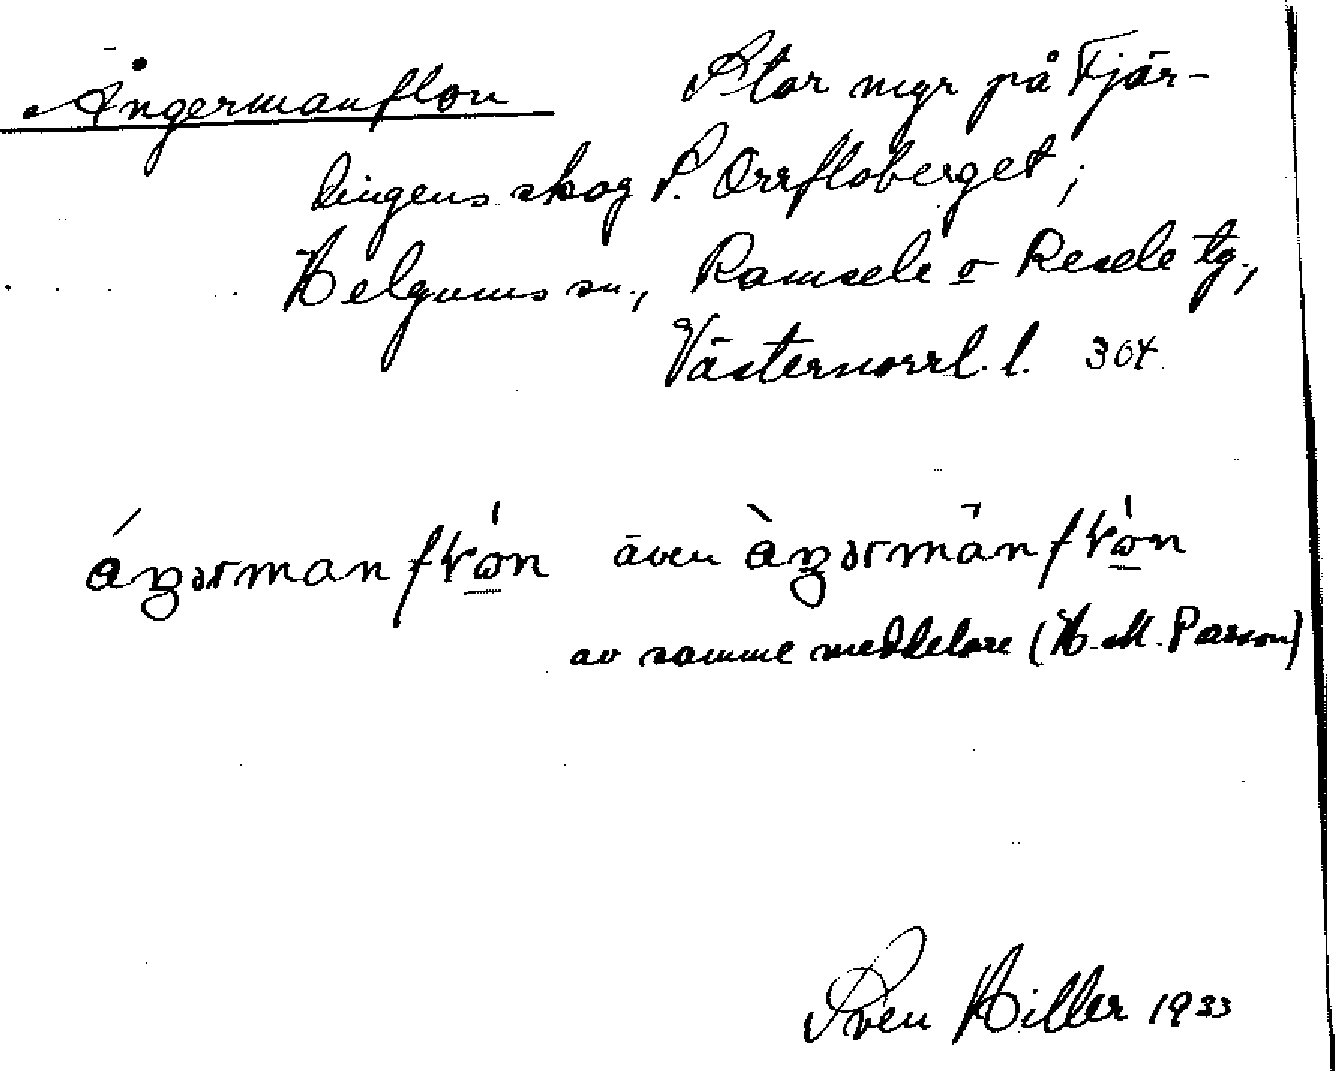 Ångermanflon Stor myr på Fjär-
dingens skog S. Orrfloberget;
Helgums sn., Ramsele o Resele tg.,
Västernorrl. l. 304.
även
av samme meddelare (H. M. Parson)
Sven Hiller 1933